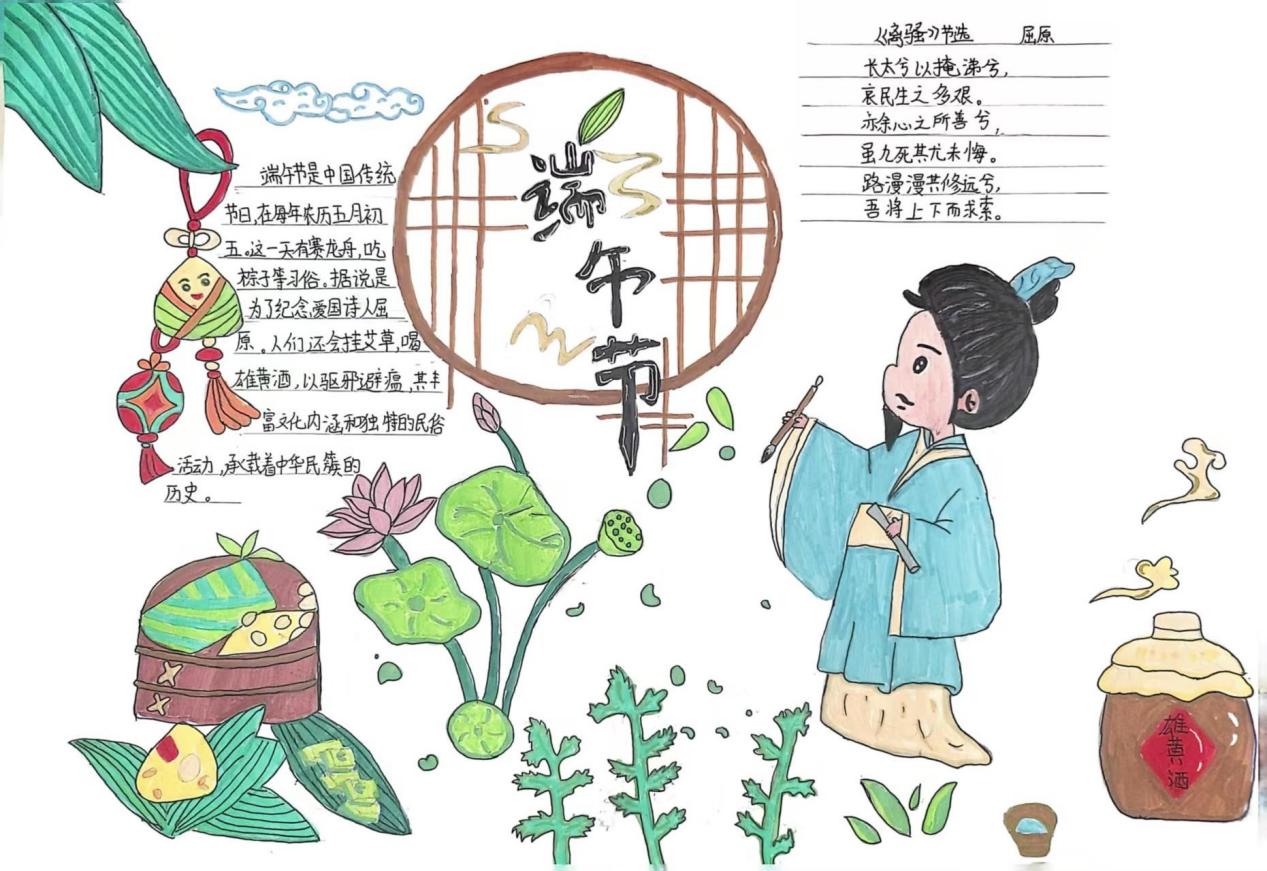 端午节
端午节是中国传统
节日,在每年农历五月初
五。这一天有赛龙舟,吃
粽子等习俗。据说是
为了纪念爱国诗人屈
原。人们还会挂艾草,喝
雄黄酒,以驱邪避瘟,其丰
富文化内涵和独特的民俗
活动,承载着中华民族的
历史。
《离骚》节选 屈原
长太兮以掩涕兮,
哀民生之多艰。
亦余心之所善兮,
虽九死其尤未悔。
路漫漫其修远兮,
吾将上下而求索。
雄黄酒